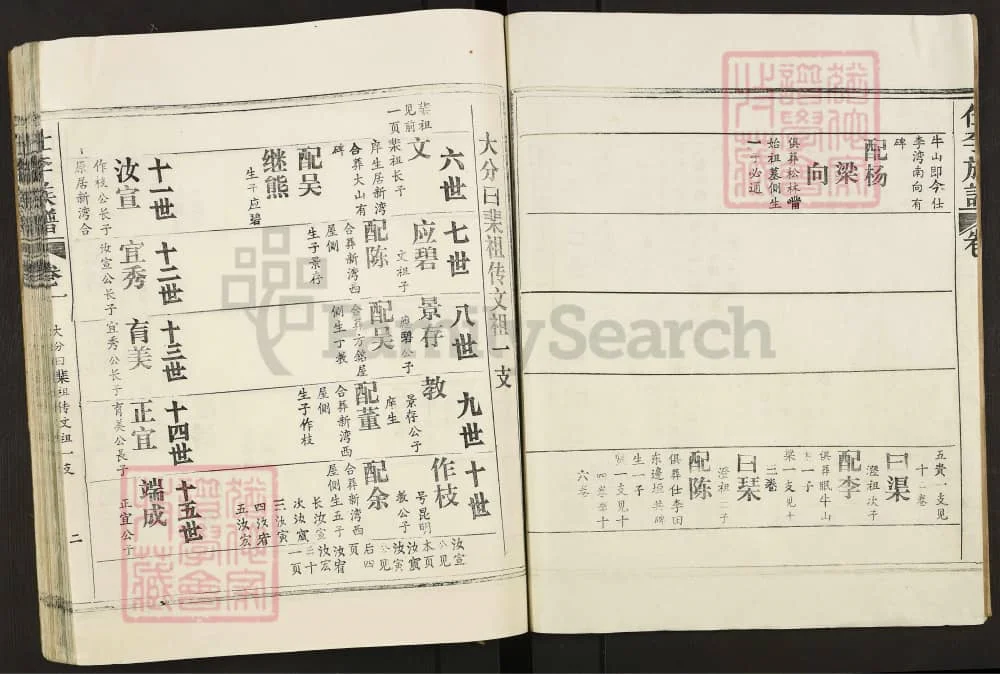 仕李族譜
卷
牛山即今仕
李湾南向有
碑
配杨
梁
向
俱葬松林嘴
始祖墓侧生
一子必通
五贵一支见
十二卷
曰渠
澄祖次子
配李
俱葬眠牛山
生一子
梁一支见十
三卷
曰琹
澄祖三子
配陈
俱葬仕李田
东边垣共碑
生一子
一支见十
六卷
大分曰棐祖传文祖一支
六世
棐祖
见前
一页
文
棐祖长子
庠生居新湾
合葬大山有
碑
配吴
继熊
生子应碧
七世
应碧
文祖子
配陈
合葬新湾西
屋侧
生子景存
八世
景存
应碧公子
配吴
合葬方銘屋
侧生丁教
九世
教
景存公子
庠生
配董
合葬新湾西
屋侧
生子作枝
十世
作枝
号昆明
教公子
配余
合葬新湾西
屋侧生五子
长汝宣
次汝賔
三汝寅
四汝宥
五汝宏
汝宣
公见
本页
汝賔
汝寅
公见
后四
页
汝宥
汝宏
三十
一页
十一世
汝宣
作枝公长子
原居新湾合
十二世
宜秀
汝宣公长子
十三世
育美
宜秀公长子
十四世
正宜
育美公長子
十五世
端成
正宜公子
仕李族譜
卷一
大分曰棐祖传文祖一支
二
FamilySearch